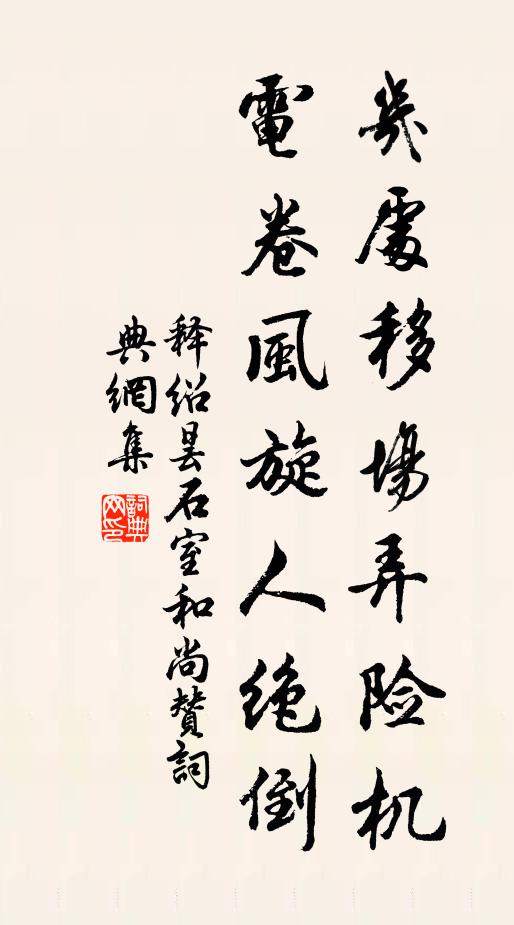 幾處移場弄险机
電卷風旋人绝倒
释绍昙石室和尚贊詞
典網集
詞典網印